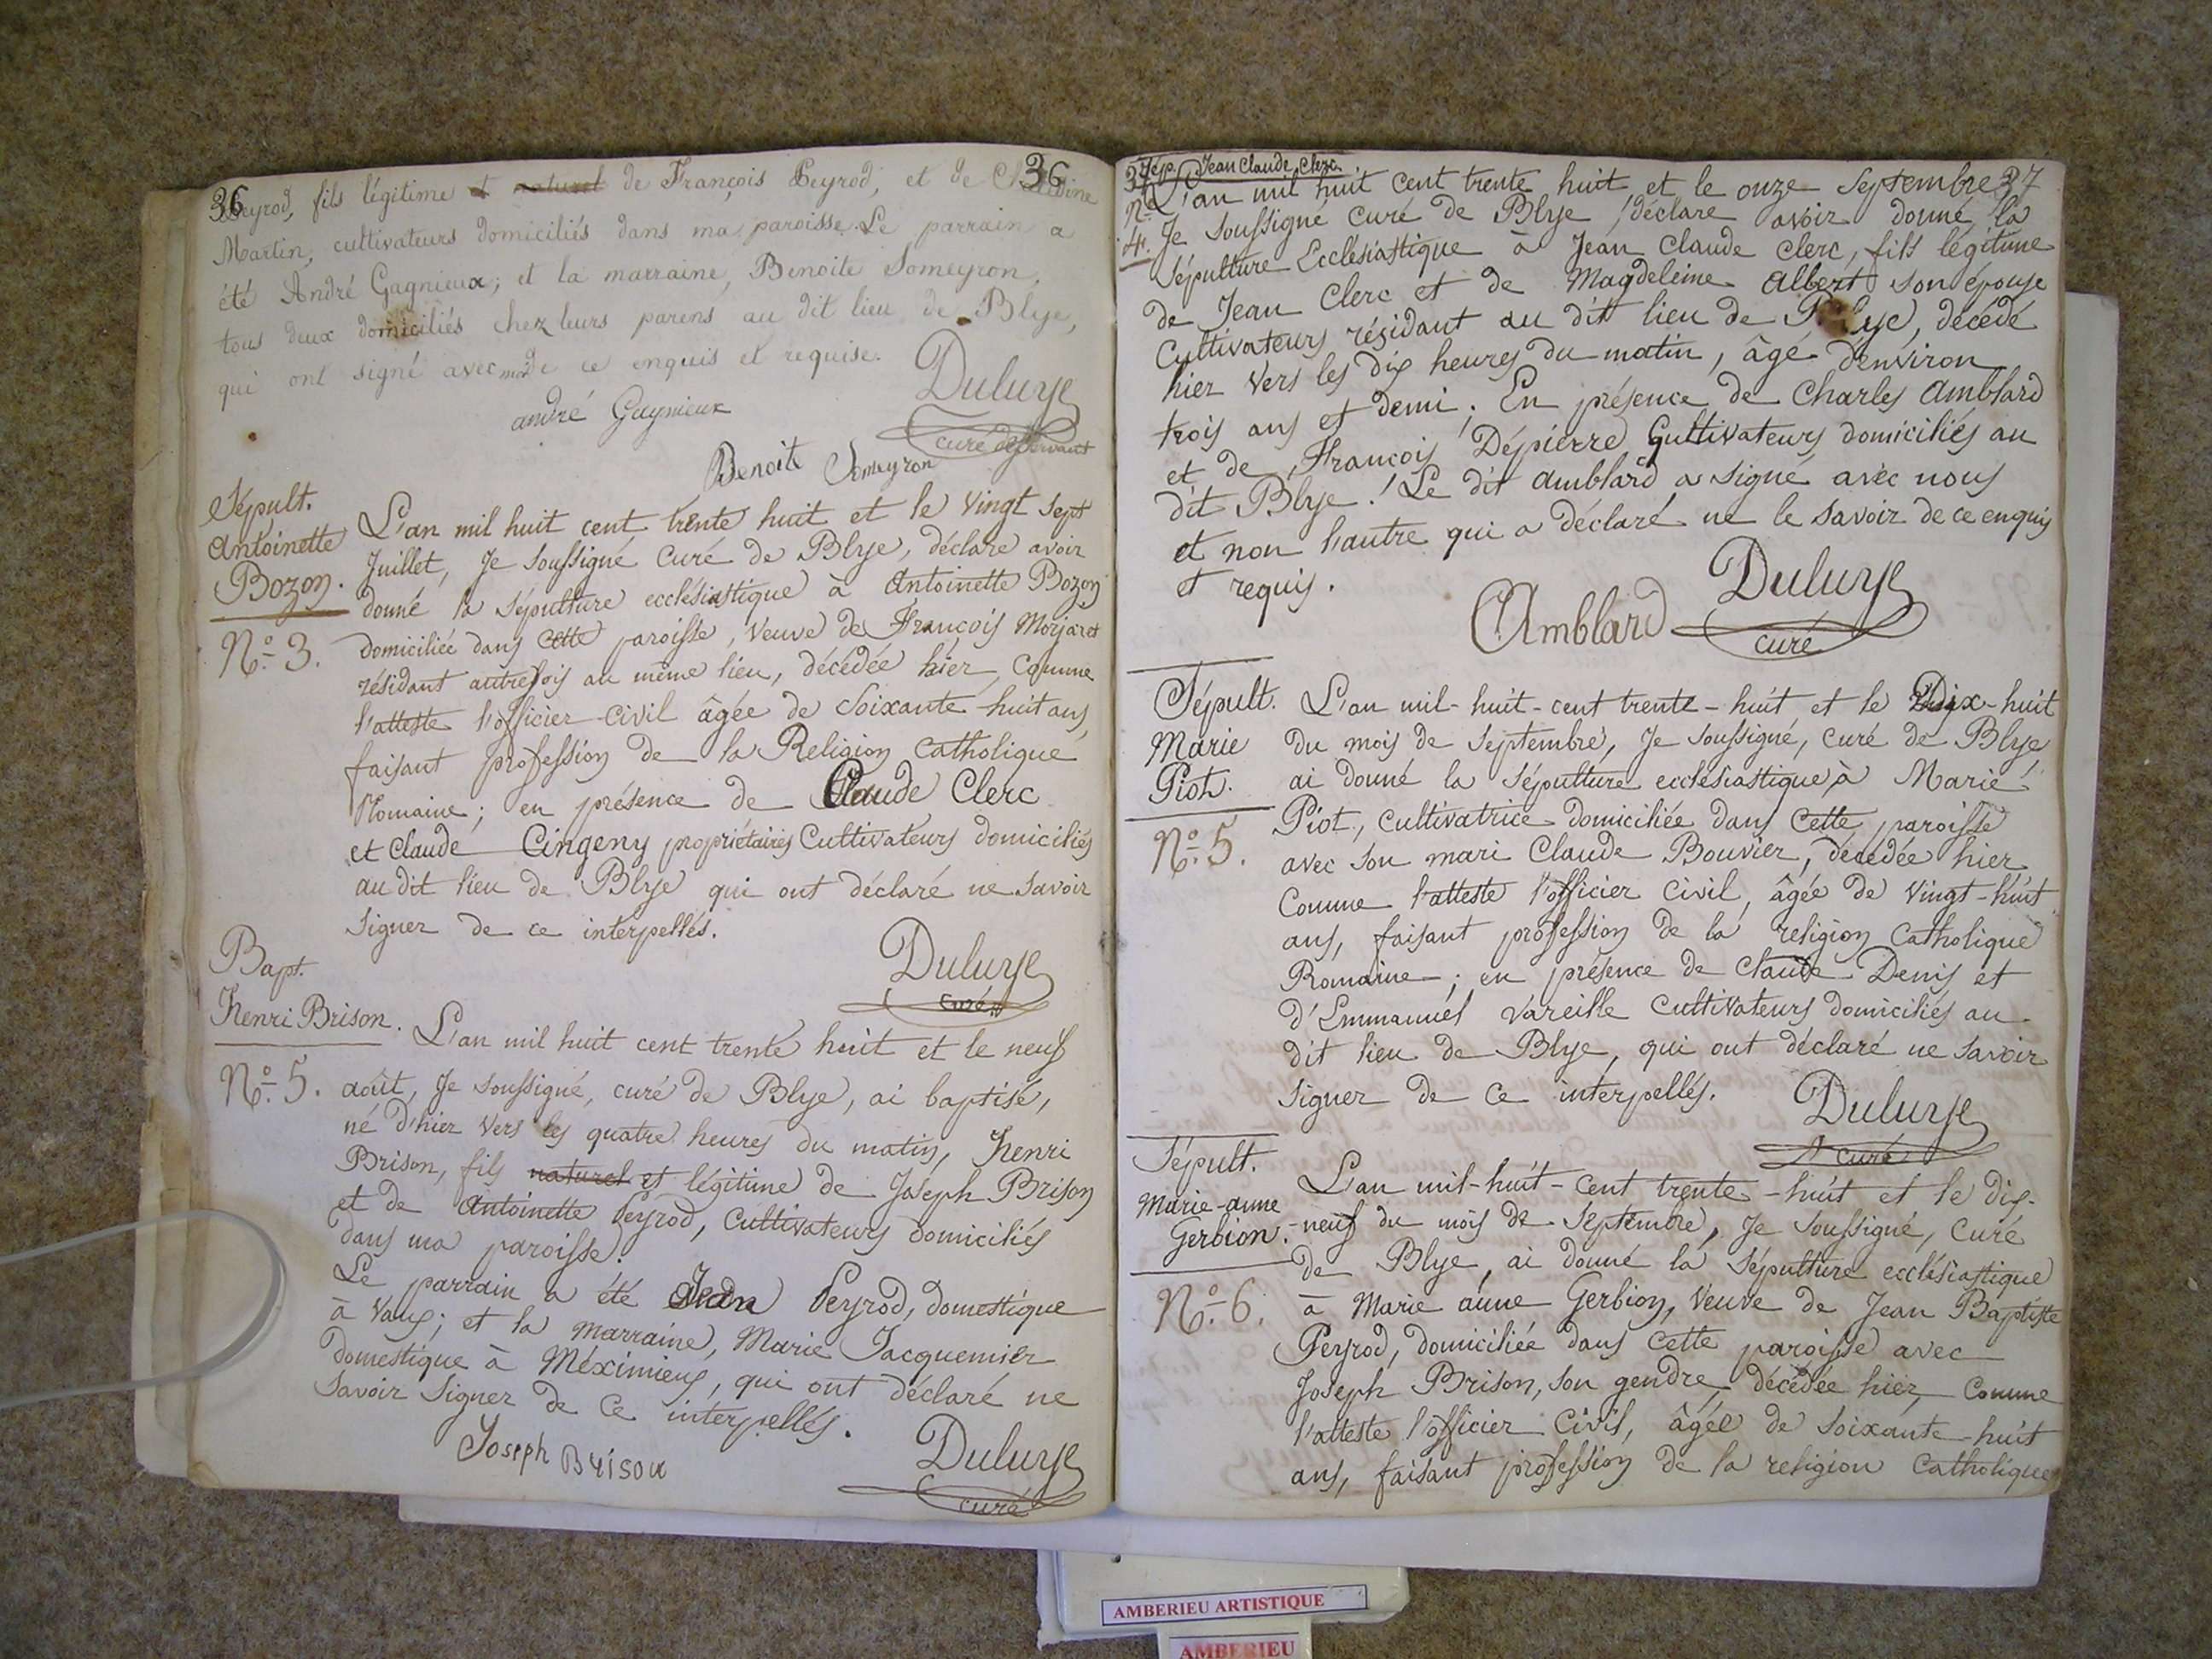 36 36
Peyrod, fils légitime et naturel de François Peyrod, et de Claudine
Martin, cultivateurs domiciliés dans ma paroisse. Le parrain a
été André Gagnieux; et la marraine, Benoite Someyron,
tous deux domiciliés chez leurs parens au dit lieu de Blye,
qui ont signé avec moi de ce enquis et requise.
Duluye
andré Gagnieux
curé desservant
Benoite Someyron
Sépult.
Antoinette
Bozon.
N.° 3.
L'an mil huit cent trente huit et le vingt sept
Juillet, Je soussigné curé de Blye, déclare avoir
donné la sépulture ecclésiastique à Antoinette Bozon
domiciliée dans cette paroisse, veuve de François Morjaret
résidant autrefois au même lieu, décédée hier, comme
l'atteste l'officier civil âgée de soixante-huit ans,
faisant profession de la Religion catholique
Romaine; en présence de Claude Clerc
et Claude Cingeny propriétaires Cultivateurs domiciliés
au dit lieu de Blye qui ont déclaré ne savoir
signer de ce interpellés.
Duluye
curé
Bapt.
Henri Brison.
N.° 5.
L'an mil huit cent trente huit et le neuf
août, Je soussigné, curé de Blye, ai baptisé,
né d'hier vers les quatre heures du matin, Henri
Brison, fils naturel et légitime de Joseph Brison
et de Antoinette Peyrod, Cultivateurs domiciliés
dans ma paroisse.
Le parrain a été Jean Peyrod, domestique
à Vaux; et la marraine, Marie Jacquemier
domestique à Méximieux, qui ont déclaré ne
savoir signer de ce interpellés.
Joseph Brison
Duluye
curé
37 Sép. Jean Claude Clerc. 37
N.° 4.
L'an mil huit cent trente huit et le onze Septembre,
Je soussigné curé de Blye, déclare avoir donné la
Sépulture Ecclésiastique à Jean Claude Clerc, fils légitime
de Jean Clerc et de Magdeleine Albert son épouse
Cultivateurs résidant au dit lieu de Blye, décédé
hier vers les dix heures du matin, âgé d'environ
trois ans et demi; En présence de Charles Amblard
et de François Dépierre Cultivateurs domiciliés au
dit Blye. Le dit Amblard a signé avec nous
et non l'autre qui a déclaré ne le savoir de ce enquis
et requis.
Duluye
Amblard
curé
Sépult.
Marie
Piot.
N.° 5.
L'an mil-huit-cent trente-huit et le Dix-huit
du mois de Septembre, Je soussigné, curé de Blye,
ai donné la sépulture ecclésiastique, à Marie
Piot, cultivatrice domiciliée dans cette paroisse
avec son mari Claude Bouvier, décédée hier
comme l'atteste l'officier civil, âgée de vingt-huit
ans, faisant profession de la religion catholique
Romaine; en présence de Claude Denis et
d'Emmanuel Vareille cultivateurs domiciliés au
dit lieu de Blye, qui ont déclaré ne savoir
signer de ce interpellés.
Duluye
curé
Sépult.
Marie-anne
Gerbion.
N.° 6.
L'an mil-huit-cent trente-huit et le dix-
-neuf du mois de Septembre, Je soussigné, curé
de Blye, ai donné la sépulture ecclésiastique
à Marie anne Gerbion, Veuve de Jean Baptiste
Peyrod, domiciliée dans cette paroisse avec
Joseph Brison, son gendre, décédée hier, comme
l'atteste l'officier civil, âgée de soixante-huit
ans, faisant profession de la religion Catholique
AMBERIEU ARTISTIQUE
AMBERIEU